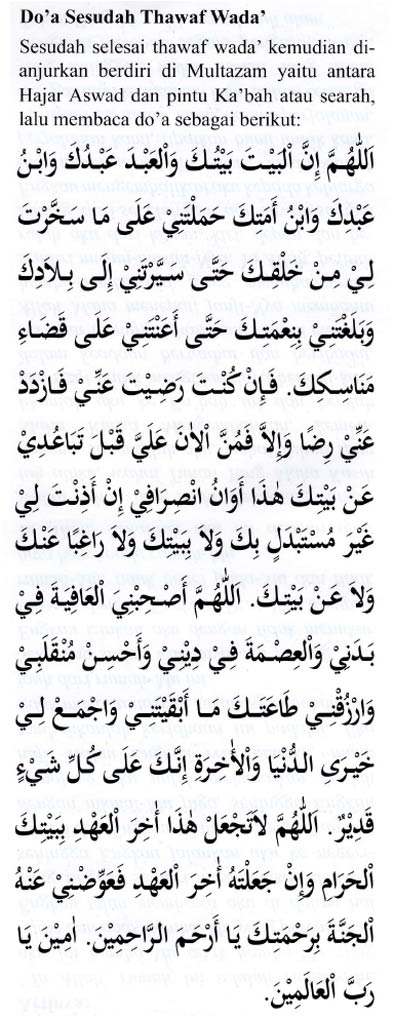 Do'a Sesudah Thawaf Wada'
Sesudah selesai thawaf wada' kemudian di-
anjurkan berdiri di Multazam yaitu antara
Hajar Aswad dan pintu Ka'bah atau searah,
lalu membaca do'a sebagai berikut:
اَللّٰهُمَّ إِنَّ الْبَيْتَ بَيْتُكَ وَالْعَبْدَ عَبْدُكَ وَابْنُ
عَبْدِكَ وَابْنُ أَمَتِكَ حَمَلْتَنِيْ عَلَى مَا سَخَّرْتَ
لِيْ مِنْ خَلْقِكَ حَتَّى سَيَّرْتَنِيْ إِلَى بِلَادِكَ
وَبَلَّغْتَنِيْ بِنِعْمَتِكَ حَتَّى أَعَنْتَنِيْ عَلَى قَضَاءِ
مَنَاسِكِكَ. فَإِنْ كُنْتَ رَضِيْتَ عَنِّيْ فَازْدَدْ
عَنِّيْ رِضًا وَإِلَّا فَمُنَّ الْأٰنَ عَلَيَّ قَبْلَ تَبَاعُدِيْ
عَنْ بَيْتِكَ هٰذَا أَوَانُ انْصِرَافِيْ إِنْ أَذِنْتَ لِيْ
غَيْرَ مُسْتَبْدَلٍ بِكَ وَلَا بِبَيْتِكَ وَلَا رَاغِبًا عَنْكَ
وَلَا عَنْ بَيْتِكَ. اَللّٰهُمَّ أَصْحِبْنِيَ الْعَافِيَةَ فِيْ
بَدَنِيْ وَالْعِصْمَةَ فِيْ دِيْنِيْ وَأَحْسِنْ مُنْقَلَبِيْ
وَارْزُقْنِيْ طَاعَتَكَ مَا أَبْقَيْتَنِيْ وَاجْمَعْ لِيْ
خَيْرَىِ الدُّنْيَا وَالْأٰخِرَةِ إِنَّكَ عَلَى كُلِّ شَيْءٍ
قَدِيْرٌ. اَللّٰهُمَّ لَاتَجْعَلْ هٰذَا أٰخِرَ الْعَهْدِ بِبَيْتِكَ
الْحَرَامِ وَإِنْ جَعَلْتَهُ أٰخِرَ الْعَهْدِ فَعَوِّضْنِيْ عَنْهُ
الْجَنَّةَ بِرَحْمَتِكَ يَا أَرْحَمَ الرَّاحِمِيْنَ. اٰمِيْنَ يَا
رَبَّ الْعَالَمِيْنَ.